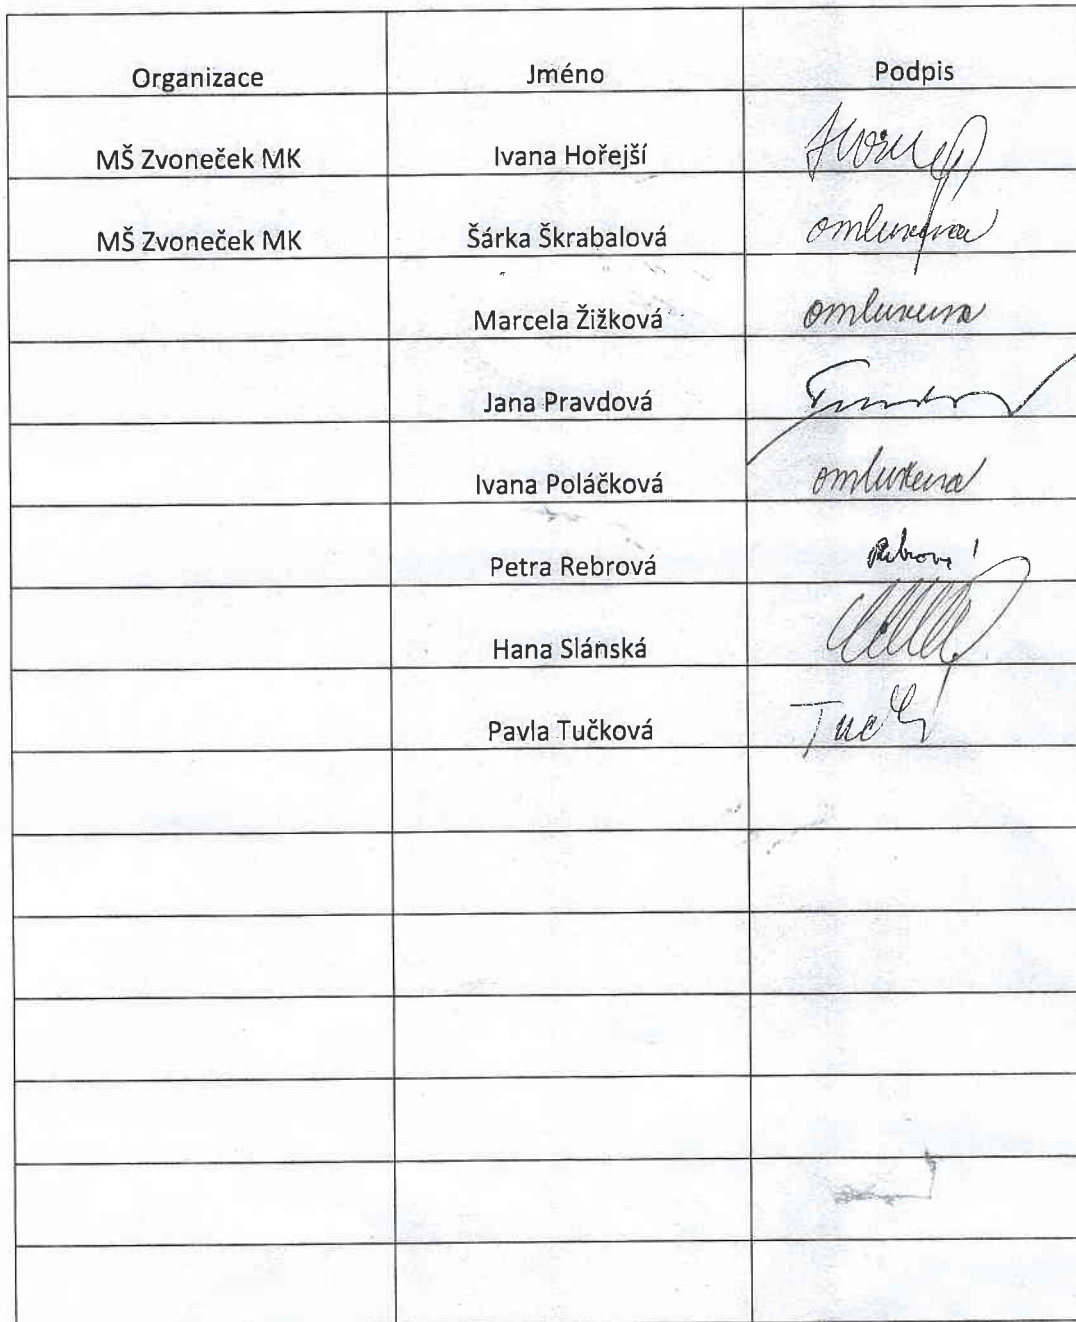 Organizace Jméno Podpis
MŠ Zvoneček MK Ivana Hořejší
MŠ Zvoneček MK Šárka Škrabalová omluvena
Marcela Žižková omluvena
Jana Pravdová
Ivana Poláčková omluvena
Petra Rebrová Rebrová
Hana Slánská
Pavla Tučková